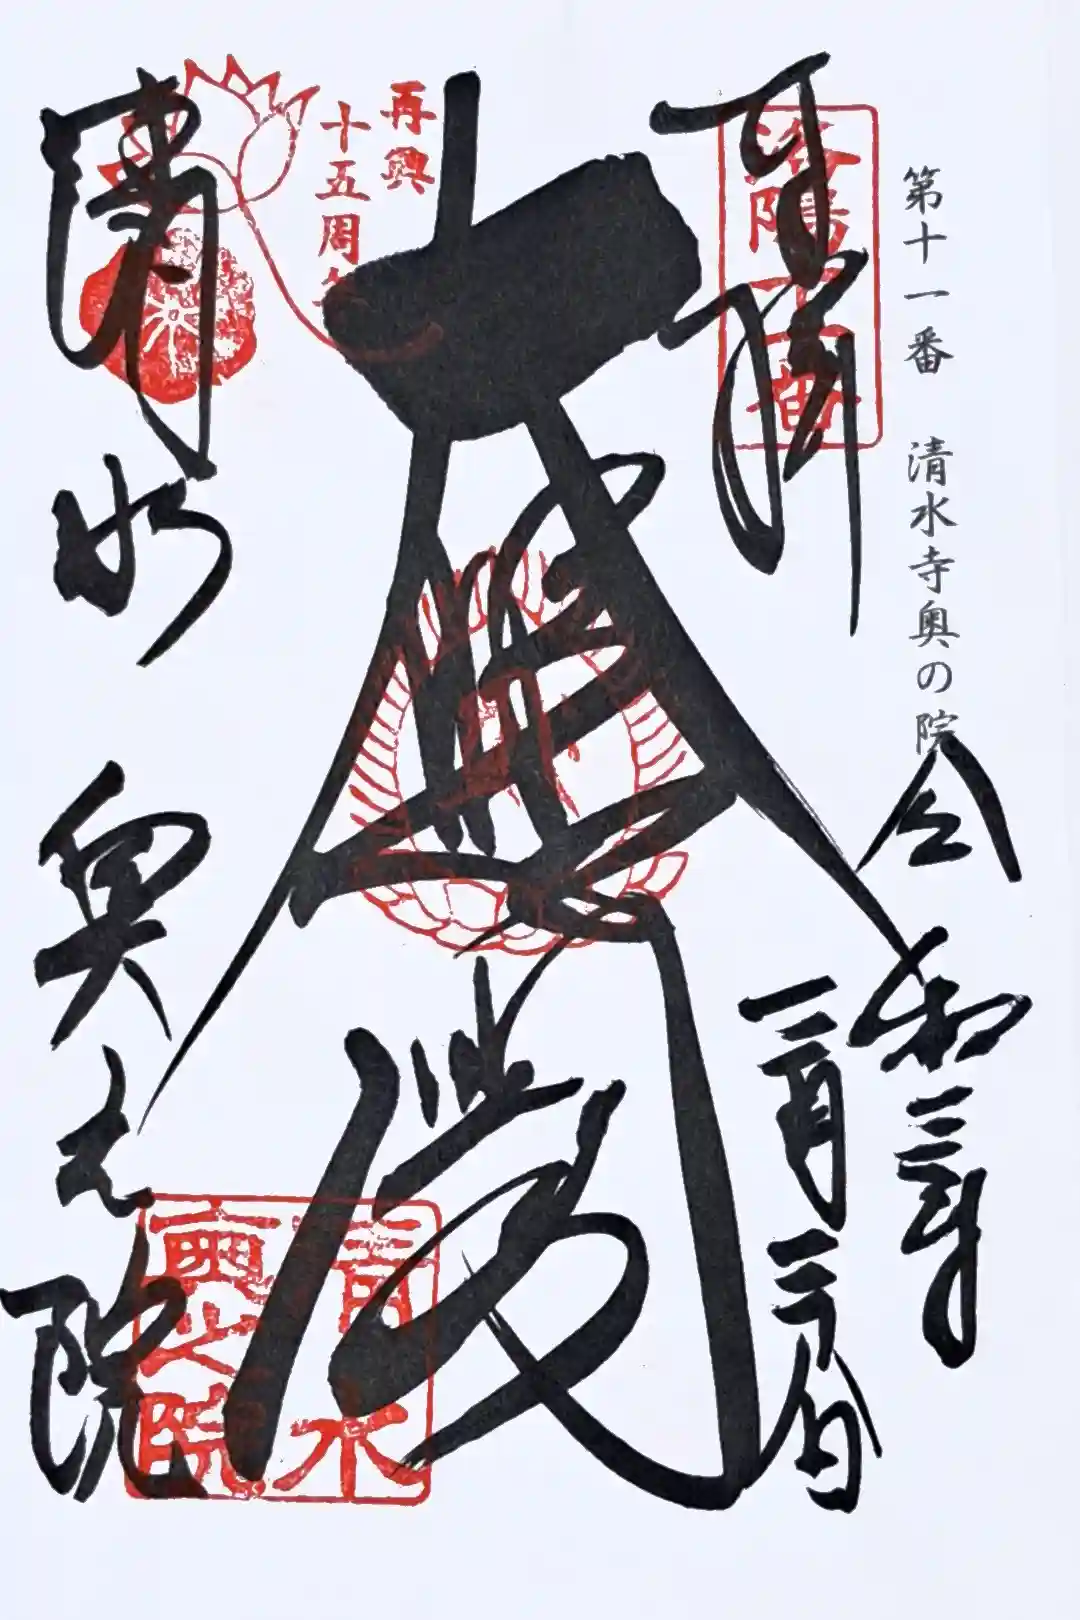 第十一番 清水寺奥の院
奉拝
洛陽十一番
令和三年
三月三日
大悲殿
再興
十五周年
清水
奥之院
清水 奥之院